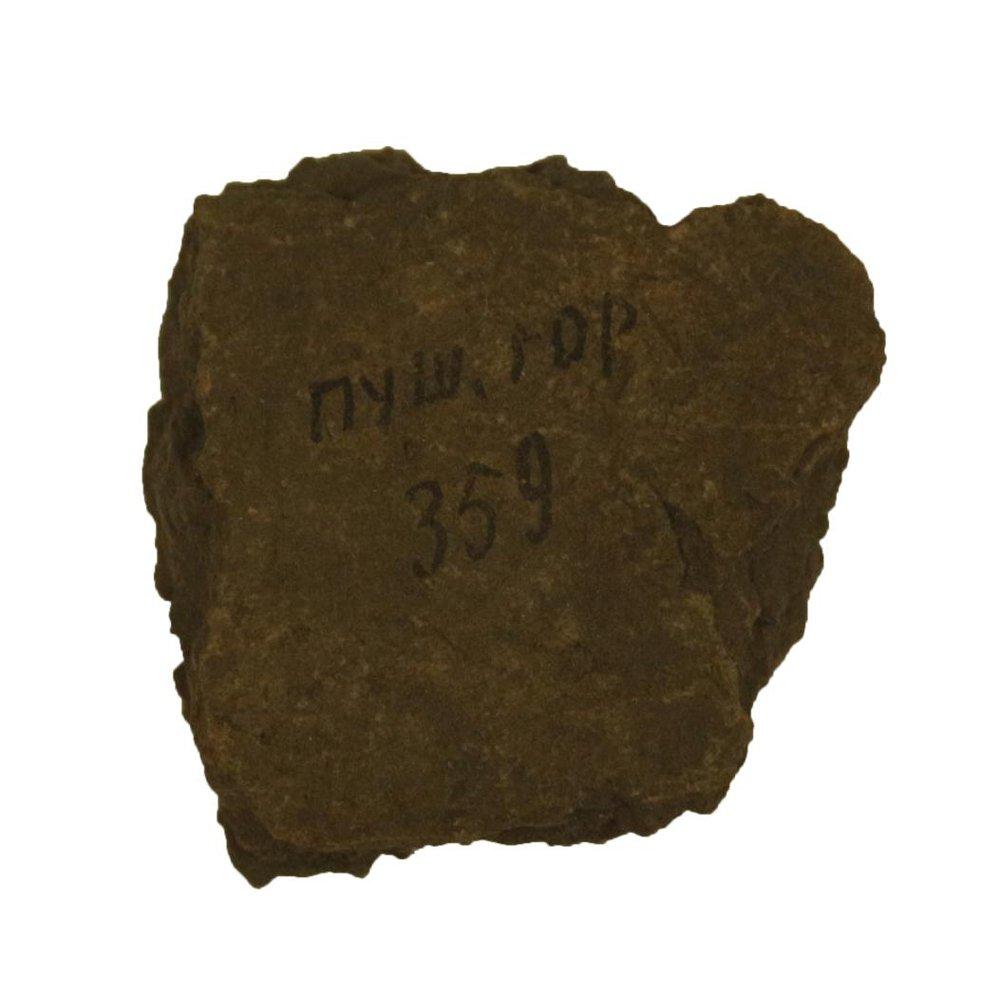 пуш. гор
359